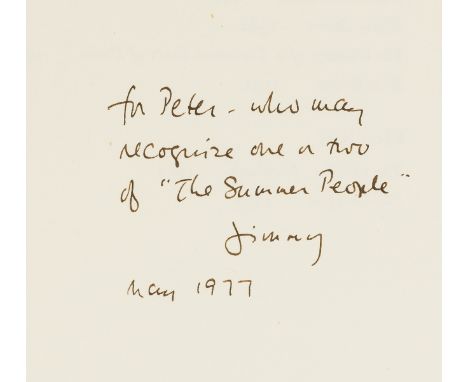 for Peter - who may
recognize one or two
of "The Summer People"
Jimmy
May 1977